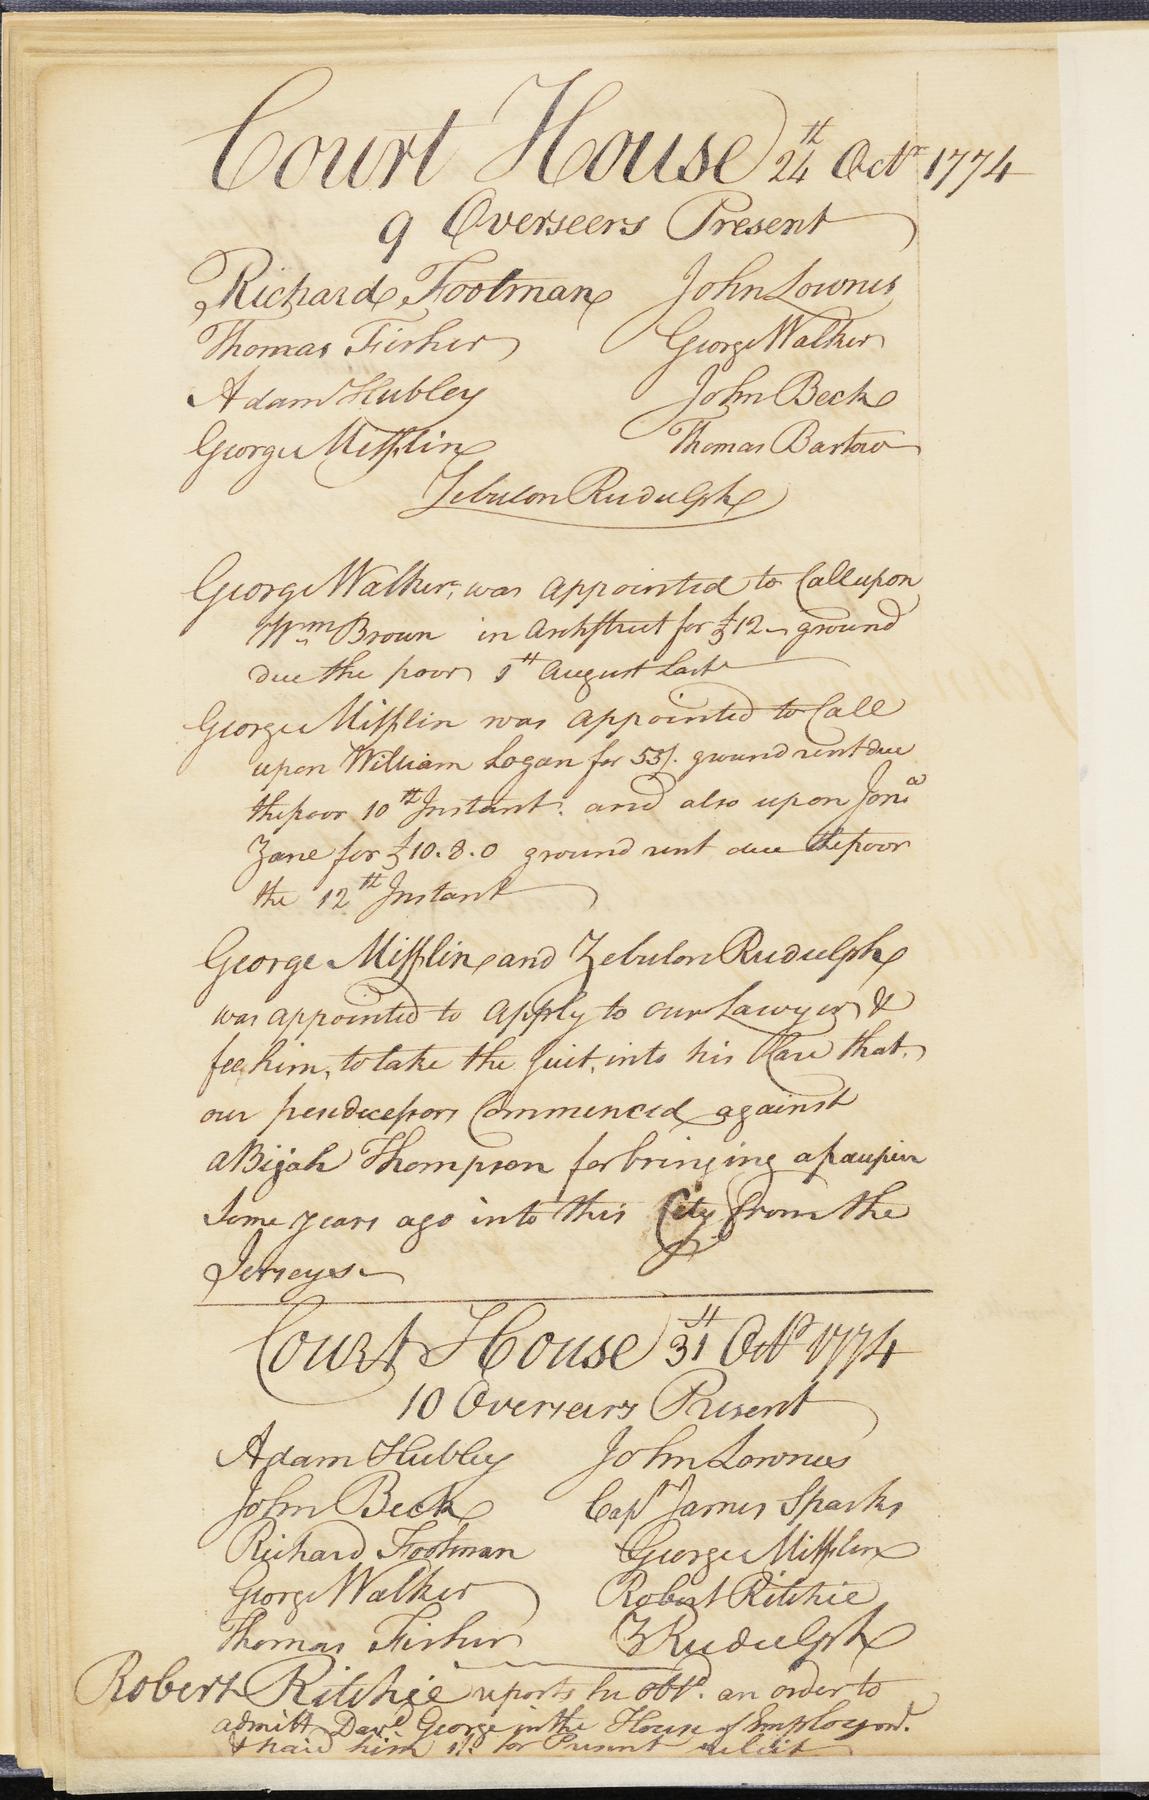 Court House 24th Octr 1774
9 Overseers Present
Richard Footman John Lownes
Thomas Fisher George Walker
Adam Hubley John Beck
George Mifflin Thomas Bartow
Zebulon Rudulph
George Walker, was appointed to Call upon
Wm Brown in Arch Street for £12 ground
due the poor 1st August Last
George Mifflin was appointed to Call
upon William Logan for 53/. ground rent due
the poor 10th Instant. and also upon Jona
Zane for £10.8.0 ground rent due the poor
the 12th Instant
George Mifflin and Zebulon Rudulph
was appointed to apply to our Lawyer &
fee him, to take the Suit, into his Care that,
our predecessors Commenced against
aBijah Thompson for bringing a paupier
Some years ago into this City from the
Jerseys
Court House 31st Octr 1774
10 Overseers Present
Adam Hubley John Lownes
John Beck Capt James Sparks
Richard Footman George Mifflin
George Walker Robert Ritchie
Thomas Fisher Z Rudulph
Robert Ritchie reports he obtd. an order to
admitt Davd George in the House of Employmt.
& paid him for Present relief